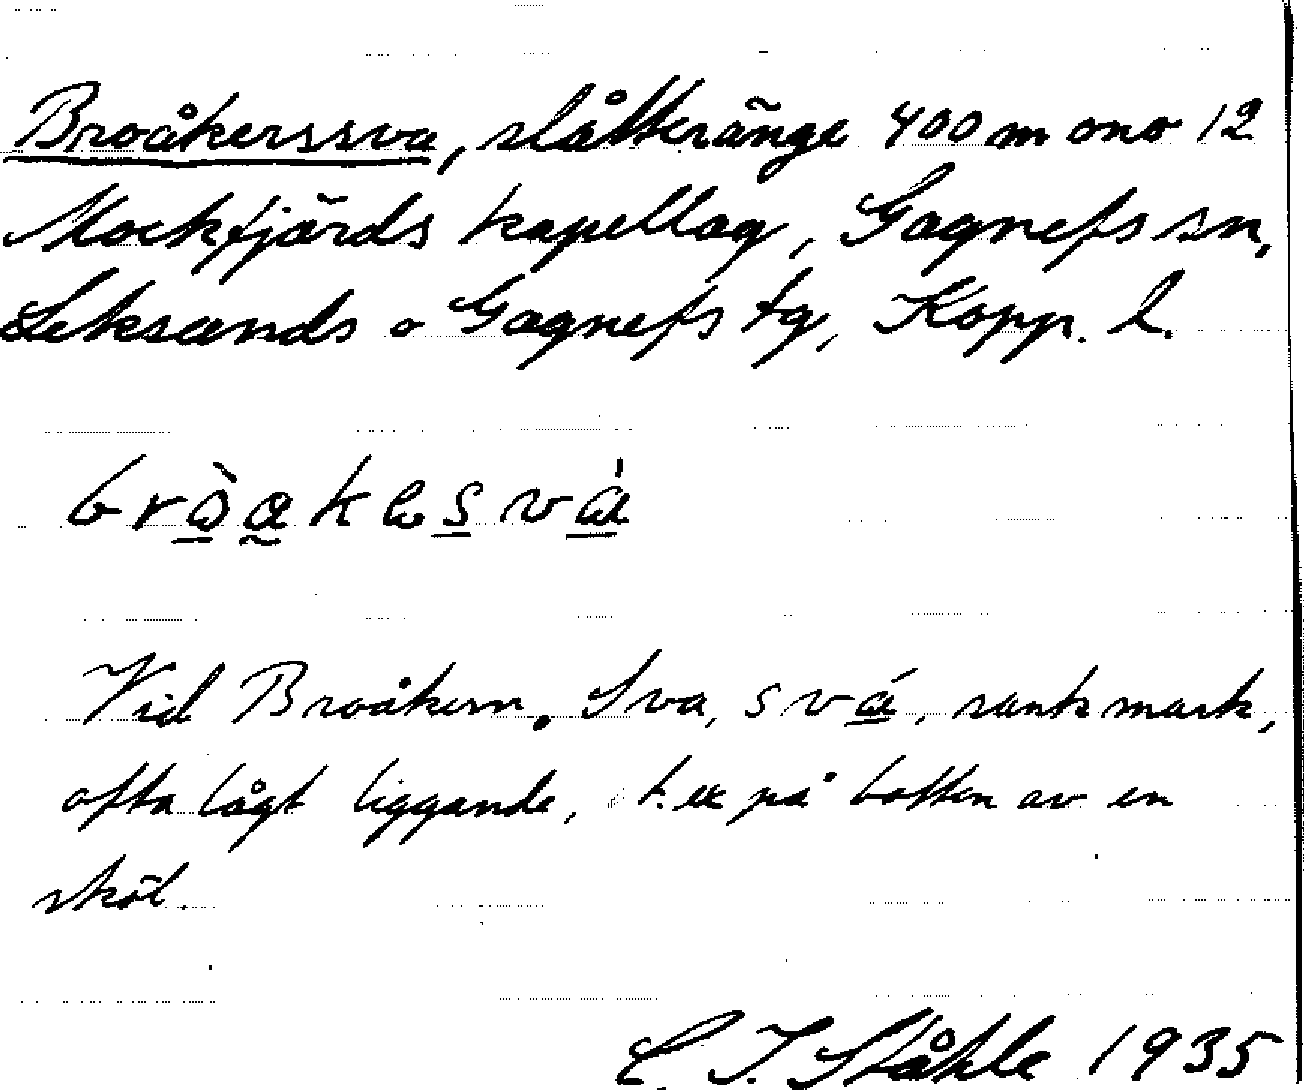 Broåkerssva, slåtteränge 400 m ono 12
Mockfjärds kapellag, Gagnefs sn,
Leksands o Gagnefs tg, Kopp. l.
Vid Broåkern. Sva, svá, sank mark,
ofta lågt liggande, t. ex på botten av en
sköl.
C. I. Ståhle 1935